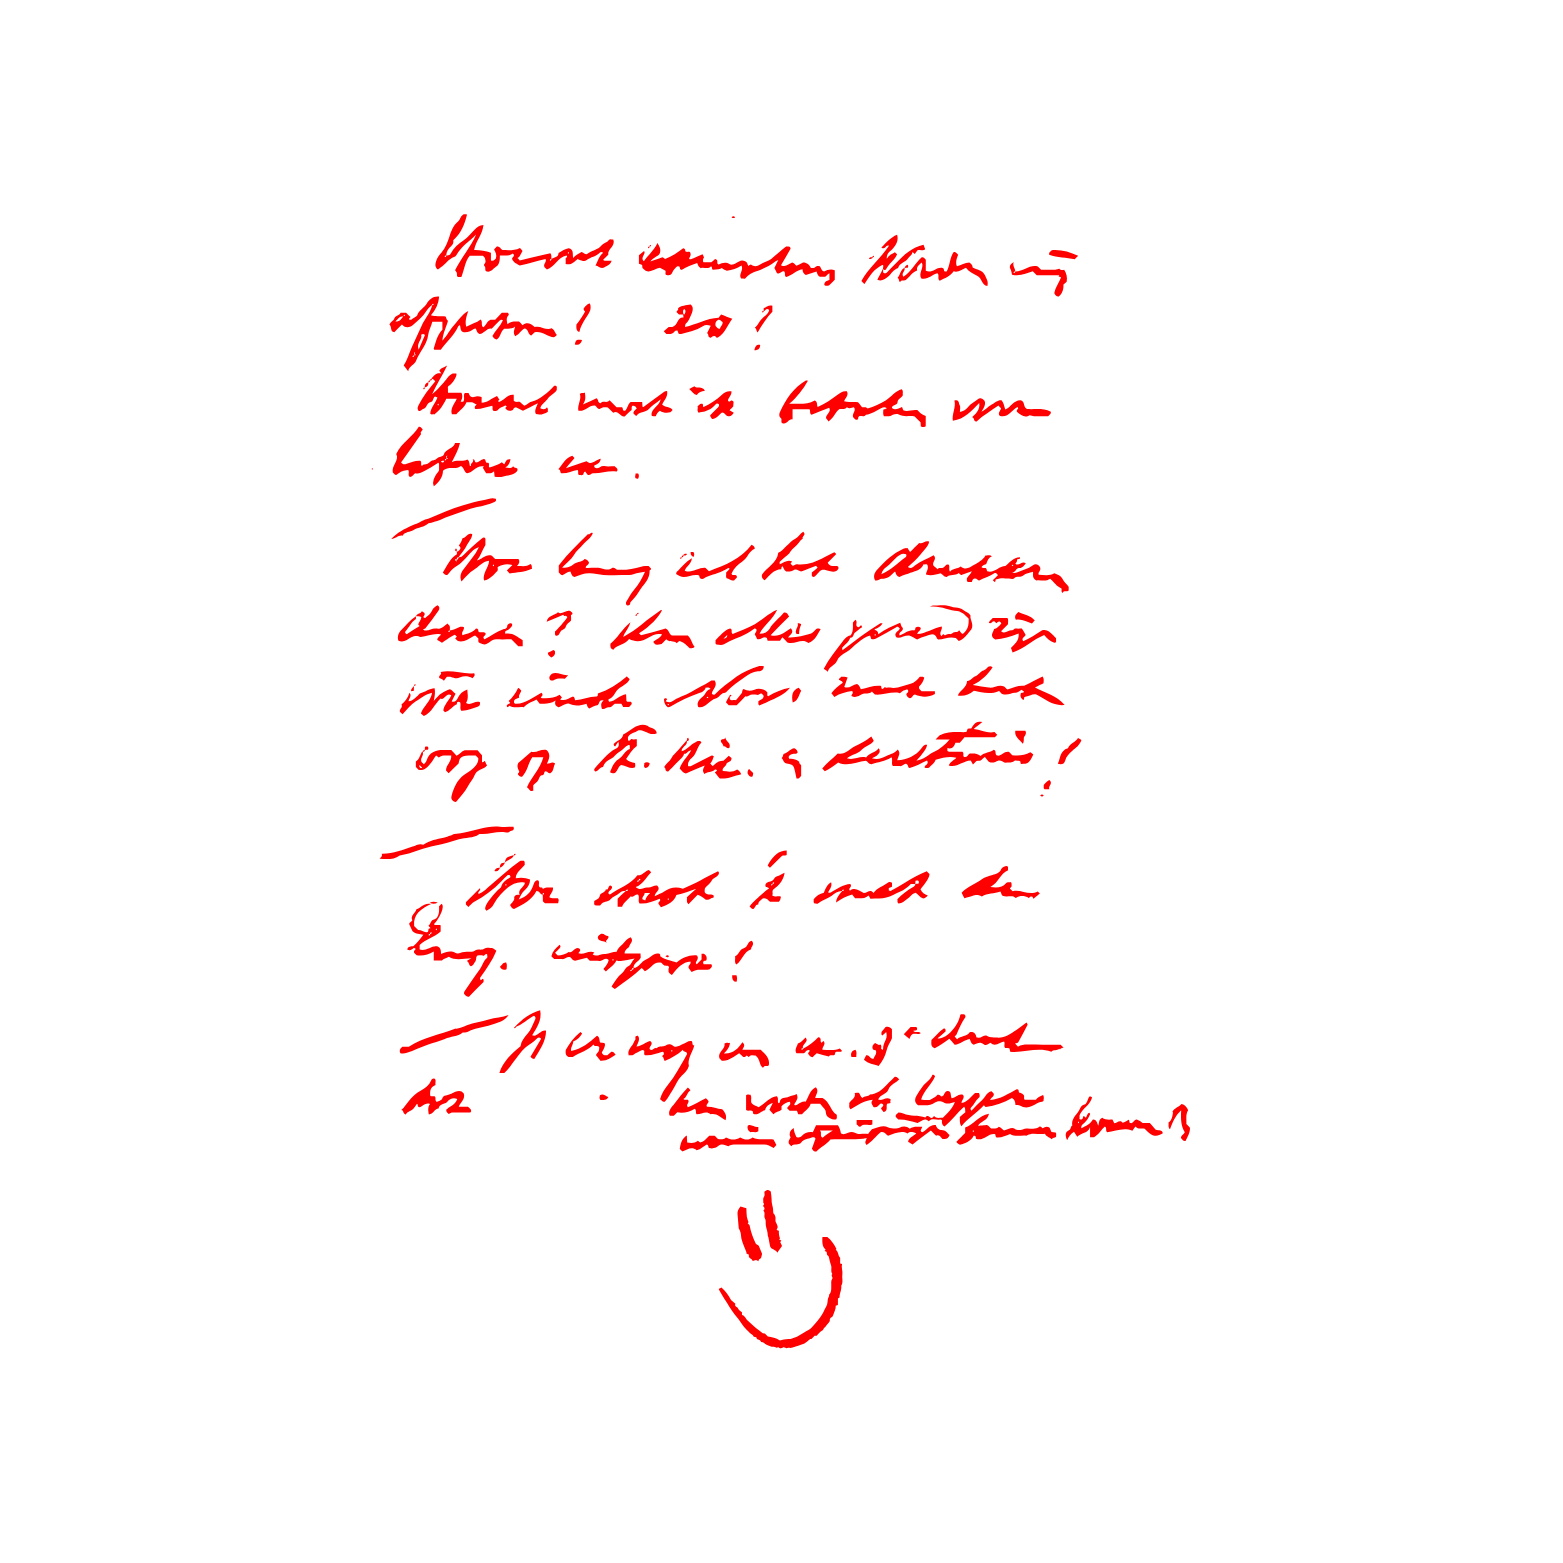 Hoeveel exemplaren worden mij
afgestaan? 20?
Hoeveel moet ik betalen voor
betere ex.
Hoe lang zal het drukken
duren? Kan alles gereed zijn
vóór einde Nov. met het
oog op St. Nic. & Kerstmis?
Hoe staat 't met de
Eng. uitgave?
Is er nog een ex. 3e druk
kan worden